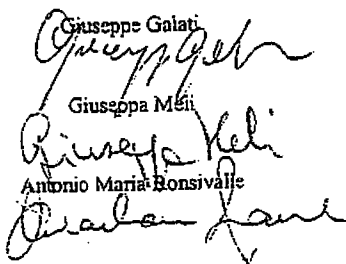 Giuseppe Galati
Giuseppe Gal
Giuseppa Meli
Giuseppa Meli
Antonio Maria Bonsivalle